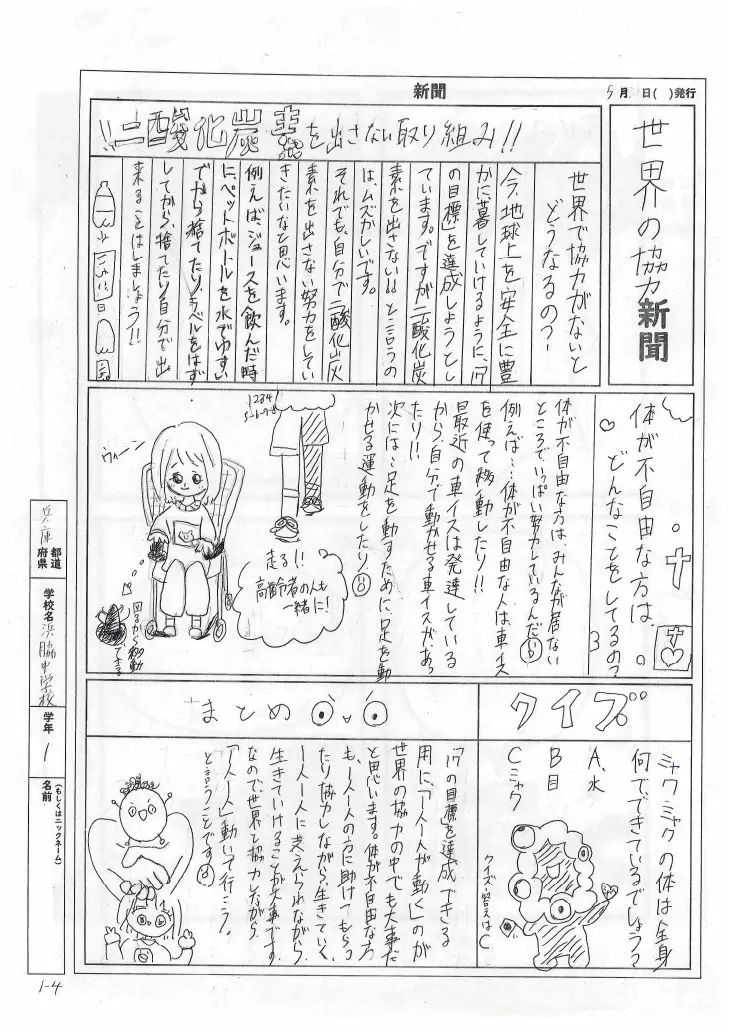 新聞
5月 日( )発行
世界の協力新聞
!!二酸化炭素を出さない取り組み!!
世界で協力がないと
どうなるの?
今、地球上を安全に豊
かに暮していけるように、17
の目標」を達成しようとし
ています。ですが二酸化炭
素を出さない」と言うの
は、ムズかしいです。
それでも、自分で二酸化炭
素を出さない努力をしてい
きたいなと思います。
例えば、ジュースを飲んだ時
に、ペットボトルを水でゆすい
でから捨てたり、ラベルをはず
してから、捨てたり自分で出
来ることはしましょう!!
体が不自由な方は、
どんなことをしてるの?
体が不自由な方は みんなが居ない
ところでいっぱい努力しているんだ
例えば…体が不自由な人は車イス
を使って移動したり!!
最近の車イスは発達している
から、自分で動かせる車イスがあっ
たり!!
次には…足を動すために、足を動
かせる運動をしたり
1234
5-6-7-8
走る!!
高齢者の人も
一緒に!
ウィーン
図るから移動
できる
クイズ
ミャクミャクの体は全身
何でできているでしょう?
A、水
B 目
C ミャク
クイズ答えはC
まとめ
「17の目標を達成できる
用に、「一人一人が動く」のが
世界の協力の中でも大事だ
と思います。体が不自由な方
も、一人一人の方に助けてもらっ
たり協力しながら、生きていく、
一人一人に支えられながら
生きていけることが大事です。
なので、世界と協力しながら
「一人一人」動いて行こう。
と言うことです
兵庫 都道府県
学校名 浜脇中学校
学年 1
名前
(もしくはニックネーム)
1-4